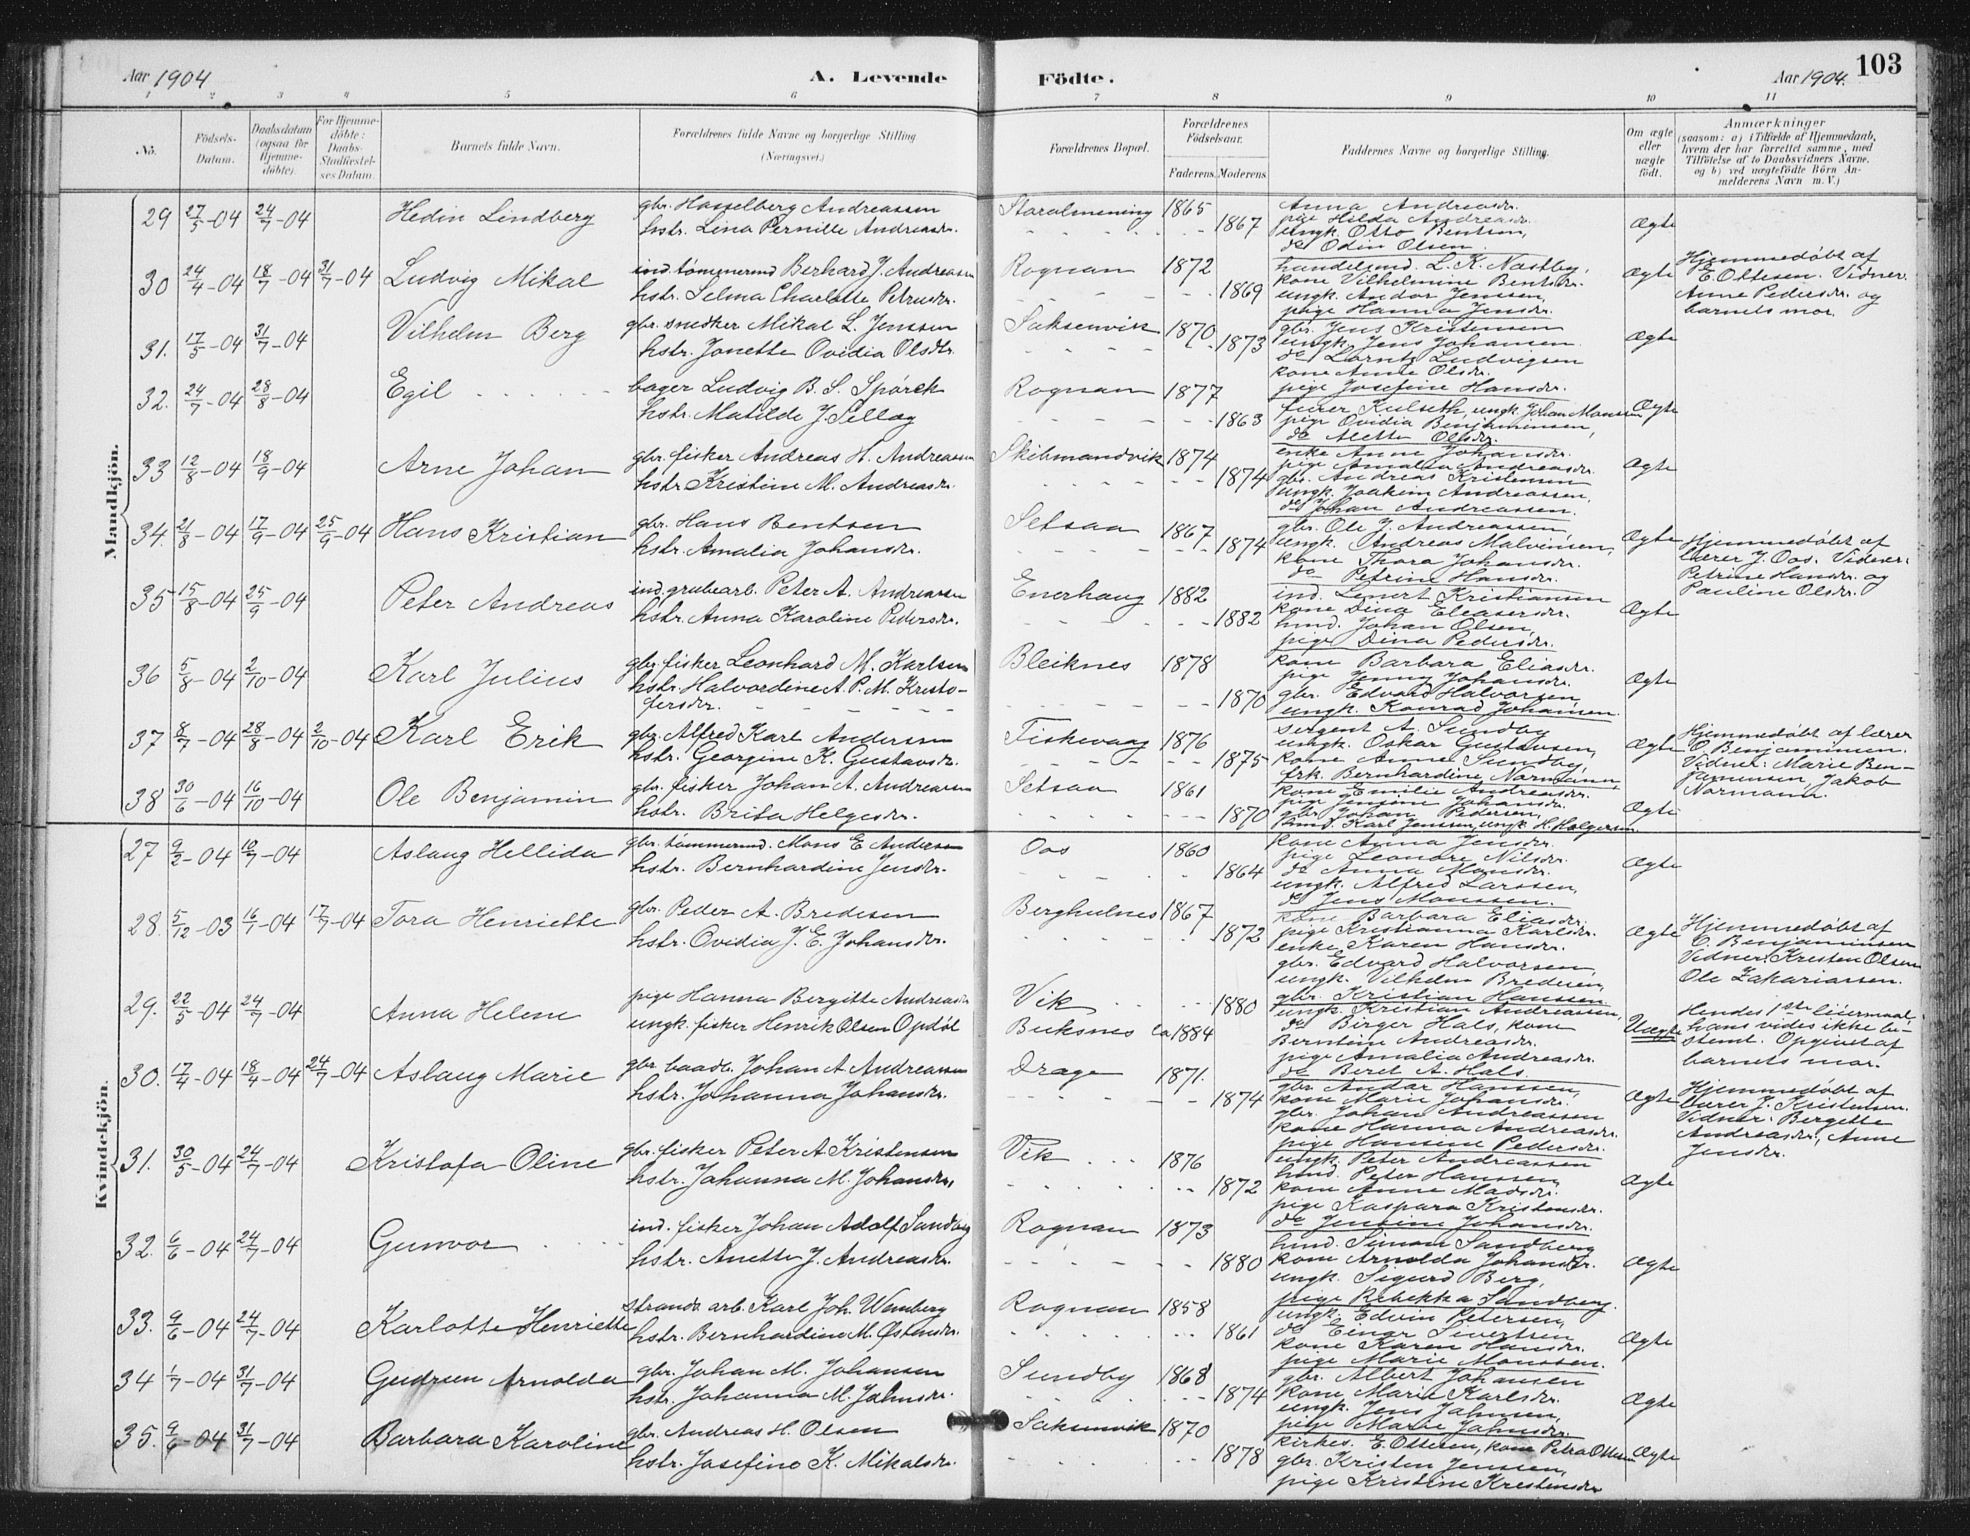 Aar 1904
A. Levende
Födte.
Aar 1904.
103
1 2 3 4 5 6 7 8 9 10 11
No.
Födsels-
Datum.
Daabsdatum
(ogsaa for
Hjemme-
döbte).
For Hjemme-
döbte:
Daabs-
Stadfæstel-
ses Datum.
Barnets fulde Navn.
Forældrenes fulde Navne og borgerlige Stilling
(Næringsvei.)
Forældrenes Bopæl.
Forældrenes
Födselsaar.
Faderens. Moderens.
Faddernes Navne og borgerlige Stilling.
Om ægte
eller
uægte
födt.
Anmærkninger
(saasom: a) i Tilfælde af Hjemmedaab,
hvem der har forrettet samme, med
Tilföielse af to Daabsvidners Navne,
og b) ved uægtefödte Börn An-
melderens Navn m. V.)
Mandkjön.
29 27/5-04 24/7-04 Hedin Lindberg
gbr. Hasselberg Andreassen
hstr. Lina Pernille Andreasdr.
Storalmening 1865
1867
Anna Andreasdr.
pige Hilda Andreasdr.
ungk. Otto Bentsen,
do Odin Olsen.
Ægte
30 24/4-04 18/7-04 31/7-04 Ludvig Mikal
ind. tømmermd Berhard J. Andreassen
hstr. Selma Charlotte Petrusdr.
Rognan 1872
1869
handelsmd. L. K. Næstby,
kone Vilhelmine Bentsdr.
ungk. Andor Jenssen,
pige Hanna Jensdr.
Ægte
Hjemmedøbt af
E. Ottesen. Vidner:
Anne Pedersdr. og
barnets mor.
31. 17/5-04 31/7-04 Vilhelm Berg
gbr. snedker Mikal L. Jenssen
hstr. Jonette Ovidia Olsdtr.
Saksenvik 1870
1873
gbr. Jens Kristensen
ungk. Jens Johansen.
do Lorntz Ludvigsen
kone Anne Olsdr.
pige Josefine Hansdr.
Ægte
32. 24/7-04 28/8-04 Egil
bager Ludvig B. S. Spörck
hstr. Matilde J. Selläg
Rognan 1877
1863
furer Kulseth, ungk. Johan Monsen
pige Ovidia Benjaminsen,
do Alette Olsdr.
Ægte
33 12/8-04 18/9-04 Arne Johan
gbr. fisker Andreas H. Andreassen
hstr. Kristine M. Andreasdr.
Skibmandvik 1874
1874
enke Anne Johansdr.
pige Amalia Andreasdr.
gbr. Andreas Kristensen
ungk. Joakim Andreassen,
do Johan Andreassen.
Ægte
34. 21/8-04 17/9-04 25/9-04 Hans Kristian
gbr. Hans Bentsen
hstr. Amalia Johansdr.
Setsaa 1867
1874
gbr. Ole J. Andreassen
ungk. Andreas Malvinsen,
kone Thora Johansdr.
do Petrine Hansdr.
Ægte
Hjemmedøbt af
lærer J. Oos. Vidner:
Petrine Hansdr. og
Pauline Olsdr.
35 15/8-04 25/9-04 Peter Andreas
ind. grubearb. Peter A. Andreassen
hstr. Anna Karoline Pedersdr.
Enerhaug 1882
1882
ind. Lenert Kristiansen
kone Dina Eleasersdr.
husd. Johan Olsen,
pige Dina Pedersdr.
Ægte
36 5/8-04 2/10-04 Karl Julius
gbr. fisker Leonhard M. Karlsen
hstr. Halvordine A. P. M. Kristo-
fersdr.
Bleiknes 1878
1870
kone Barbara Eliasdr.
pige Jenny Johansdr.
gbr. Edvard Halvorsen,
ungk. Konrad Johansen.
Ægte
37 8/7-04 28/8-04 2/10-04 Karl Erik
gbr. Alfred Karl Andersen
hstr. Georgine K. Gustavsdr.
Fiskevaag 1876
1875
sergent A. Sundby
ungk. Oskar Gustavsen,
kone Anne Sundby,
frk. Bernhardine Normann,
Ægte
Hjemmedøbt af lærer
O. Benjaminsen.
Vidner: Marie Ben-
jaminsen, Jakob
Normann.
38 30/6-04 16/10-04 Ole Benjamin
gbr. fisker Johan A. Andreassen
hstr. Brita Helgesdr.
Setsaa 1861
1870
kone Emilie Andreasdr.
pige Jensine Johansdr.
gbr. Johan Pedersen,
husd. Karl Jenssen, ungk. H. Holgersen.
Ægte
Kvindekjön.
27 9/2-04 10/7-04 Aslaug Hellida
gbr. tømmermd. Mons E Andersen
hstr. Bernhardine Jensdr.
Oos 1860
1864
kone Anna Jensdr.
pige Leonore Nilsdr.
do Anna Monsdr.
ungk. Alfred Larssen,
do Jens Monssen.
Ægte
28. 5/12-03 16/1-04 17/7-04 Tora Henriette
gbr. Peder A. Bredesen
hstr. Ovidia J. E. Johansdr.
Berghulnes 1867
1872
kone Barbara Eliasdr.
pige Kristianna Karlsdr.
enke Karen Hansdr.
gbr. Edvard Halvorsen,
ungk. Vilhelm Bredesen,
gbr. Kristian Hanssen
Ægte
Hjemmedøbt af
O. Benjaminsen
Vidner: Kristen Olsen
Ole Zakariassen.
29. 22/5-04 24/7-04 Anna Helene
pige Hanna Bergitte Andreasdr
ungk. fisker Henrik Olsen Opdöl
Vik 1880
Buksnes ca 1884
ungk. Kristian Andreassen,
do Birger Hals, kone
Berntine Andreasdr.
pige Amalia Andreasdr.
do Beret A. Hals.
Uægte
Hendes 1ste leiermaal,
hans vides ikke be-
stemt. Opgivet af
barnets mor.
30. 17/4-04 18/4-04 24/7-04 Aslaug Marie
gbr. baadb. Johan A Andreassen
hstr. Johanna Johansdr.
Drage 1871.
1874
gbr. Andor Hanssen,
kone Marie Johansdr.
gbr. Johan Andreassen
kone Hanna Andreasdr.
pige Hansine Pedersdr.
Ægte
Hjemmedøbt af
lærer J. Kristensen.
Vidner: Bergette
Andreasdr., Anne
Jensdr.
31. 30/5-04 24/7-04 Kristofa Oline
gbr. fisker Peter A Kristensen
hstr. Johanna M. Johansdr.
Vik 1876
1872
ungk. Peter Andreassen
husd. Peter Hanssen,
kone Anne Madsdr.
pige Kaspara Kristensdr.
do Jensine Johansdr.
Ægte
32. 6/6-04 24/7-04 Gunvor
ind. fisker Johan Adolf Sandberg
hstr. Anette J. Andreasdr.
Rognan 1873
1880
husd. Simon Sandberg
kone Arnolda Johansdr.
ungk. Sigurd Berg,
pige Rebekka Sandberg.
Ægte
33. 9/6-04 24/7-04 Karlotte Henriette
strands. arb. Karl Joh. Wenberg
hstr. Bernhardine M. Østensdr.
Rognan 1858
1861
ungk. Edvin Petersen,
do Einar Sivertsen
kone Karen Hansdr.
pige Marie Monssen.
Ægte
34 1/7-04 31/7-04 Gudrun Arnolda
gbr. Johan M. Johansen
hstr. Johanna M. Jahnsdr.
Sundby 1868
1874
gbr. Albert Johansen
kone Maria Karlsdr.
ungk. Jens Jahnsen,
pige Marie Jahnsdr.
Ægte
35. 9/6-04 31/7-04 Barbara Karoline
gbr. Andreas H. Olsen
hstr. Josefine K. Mikalsdr.
Saksenvik 1870
1878
kirkes. E. Ottesen, kone Petra Ottesen
gbr. Kristen Jenssen,
pige Kristine Kristensdr
Ægte